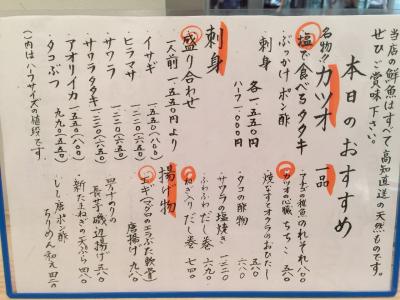 当店の鮮魚はすべて高知直送の天然ものです。
ぜひご賞味下さい。
本日のおすすめ
名物!! カツオ
塩で食べるタタキ
ぶっかけポン酢
刺身
各一.五五〇円
ハーフ一.〇〇〇円
刺身
盛り合わせ
一人前一.五五〇円より
イサギ 一.五五〇(八〇〇)
ヒラマサ
サワラ 一.二三〇(六五〇)
サワラタタキ 一.二三〇(六五〇)
アオリイカ 一.五五〇(八〇〇)
タコぶつ 九九〇(五五〇)
( )内はハーフサイズの値段です。
一品
アナゴの稚魚のれそれ 八〇〇
カツオの心臓 ちちこ 五八〇
焼なすとオクラのおひたし 五八〇
タコの酢物 六八〇
サワラの塩焼き 一.二三〇
ふわふわだし巻 六九〇
ねぎ入りだし巻 七四〇
揚げ物
エギ(マグロのエラぶた軟骨)
唐揚げ 九八〇
長芋磯辺揚げ 五八〇
新たまねぎの天ぷら 四八〇
しし唐ポン酢
ちりめん和え 四二〇